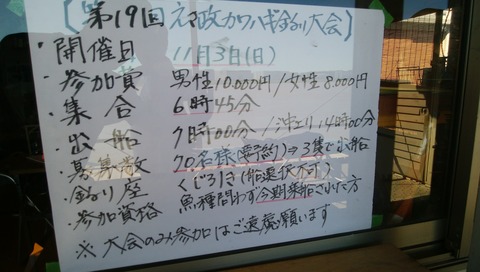 【第19回 えさ政カワハギ釣り大会】
・開催日 11月3日(日)
・参加費 男性10.000円/女性8.000円
・集合 6時45分
・出船 7時00分/沖上り14時00分
・募集数 70名様(要予約)⇒3隻で出船
・釣り座 くじ引き(船選択不可)
・参加資格 魚種問わず今期乗船された方
※大会のみ参加はご遠慮願います